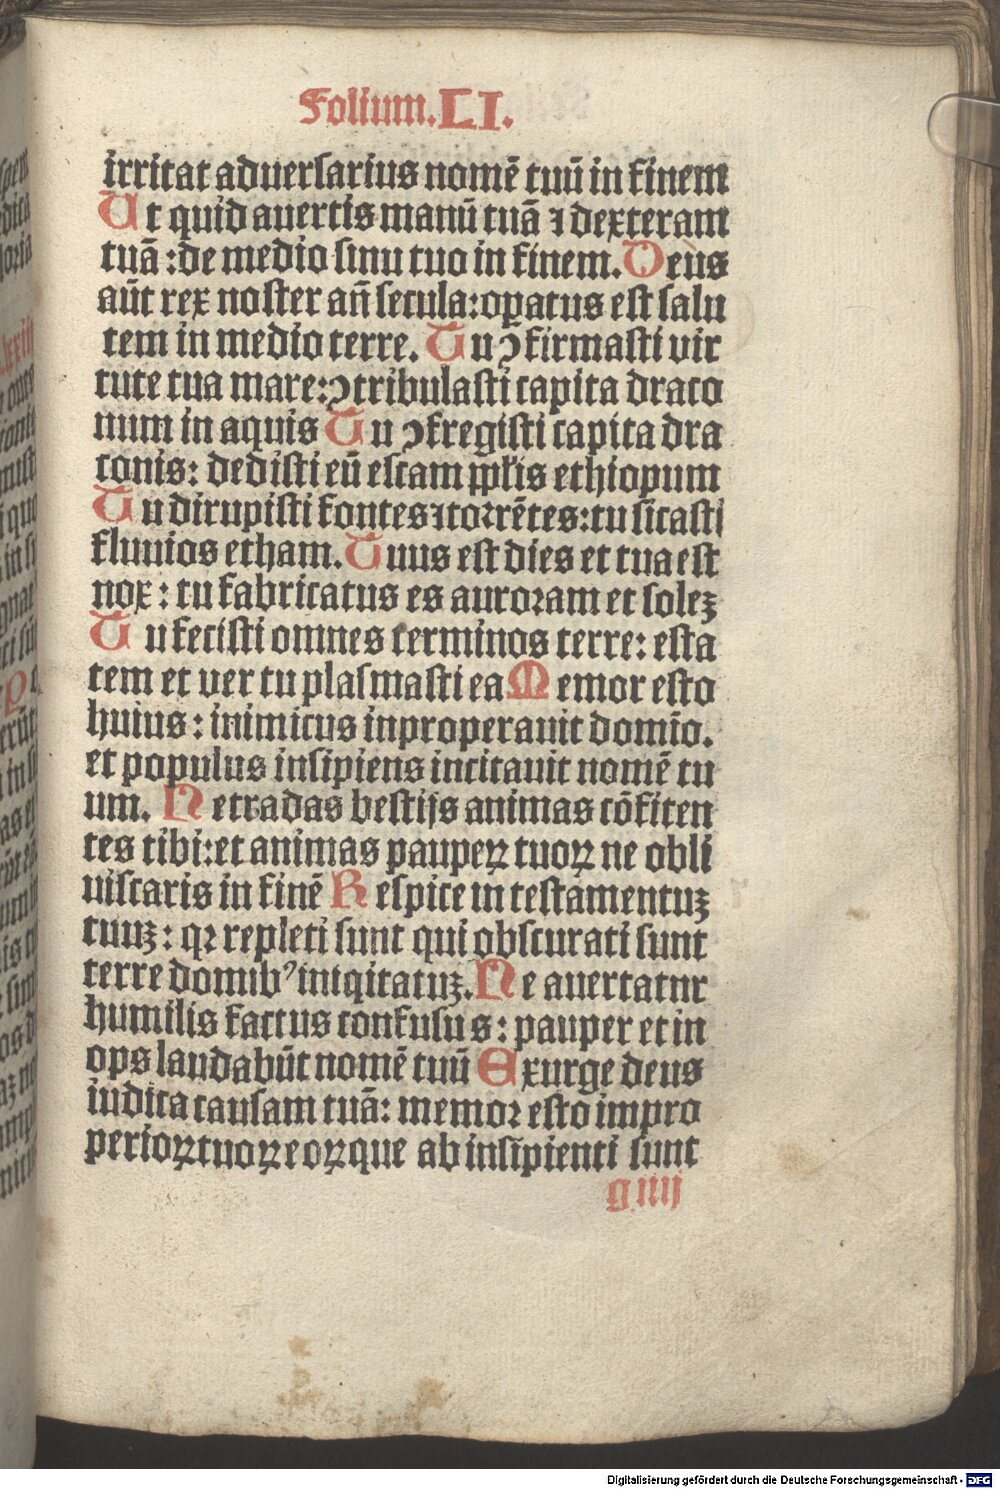 Folium.LI.
irritat aduersarius nomē tuū in finem
Ut quid auertis manū tuā ⁊ dexteram
tuā :de medio sinu tuo in finem. Deus
aūt rex noster añ secula:oꝑatus est salu
tem in medio terre. Tu ꝯfirmasti vir
tute tua mare:ꝯtribulasti capita draco
num in aquis Tu ꝯfregisti capita dra
conis: dedisti eū escam pplis ethiopum
Tu dirupisti fontes⁊torrētes:tu sicasti
fluuios etham. Tuus est dies et tua est
nox : tu fabricatus es auroram et soleꝫ
Tu fecisti omnes terminos terre: esta
tem et ver tu plasmasti ea Memor esto
huius : inimicus inproperauit domīo.
et populus insipiens incitauit nomē tu
um. Ne tradas bestijs animas cōfiten
tes tibi:et animas paupeꝝ tuoꝝ ne obli
uiscaris in finē Respice in testamentuꝫ
tuuꝫ : qꝛ repleti sunt qui obscurati sunt
terre domibꝰ iniqitatuꝫ. Ne auertatur
humilis factus confusus : pauper et in
ops laudabūt nomē tuū Exurge deus
iudica causam tuā: memor esto impro
perioꝝ tuoꝝ eoꝝque ab insipienti sunt
g iiij
Digitalisierung gefördert durch die Deutsche Forschungsgemeinschaft - DFG